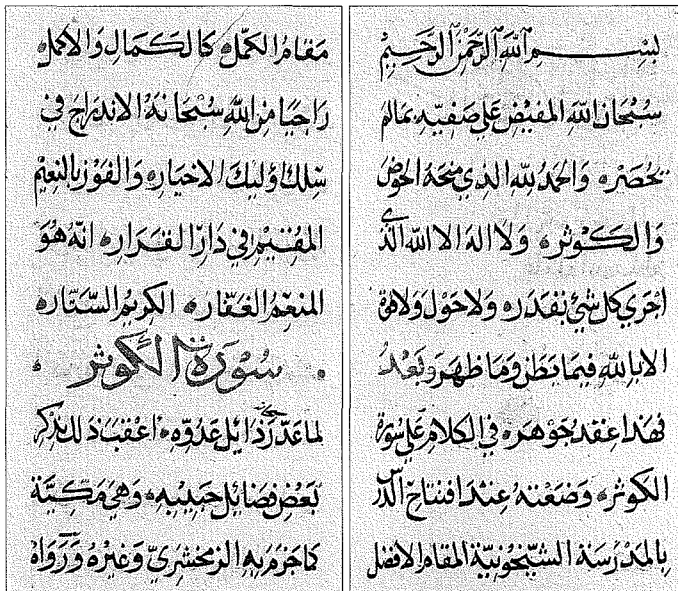 بِسْمِ اللهِ الرَّحْمٰنِ الرَّحِيْمِ
سُبْحَانَ اللهِ المفِيْضِ عَلى صَفيِّهِ بمالم
يحْصَرْه وَالحمدُ للهِ الذِي منحَهُ الحَوْضَ
وَالكَوْثره وَلا الهَ الا اللهُ الذي
اجري كل شيْ بقَدَره وَلا حَوْلَ وَلا قوة
الا باللهِ فيمَا بَطنَ وَمَا ظهَرَ وبَعْدُ
فهَذا عِقد جَوْهَره في الكلامِ عَلى سُورة
الكوثره وَضَعْتهُ عِنْدَ افتتاح الدرس
بِالمدْرَسَة الشيْخُونيّة المقام الافضل
مَقامُ الكمّله كالكَمالِ وَالاكمله
رَاجيًا مِن اللهِ سُبْحَانهُ الاندرَاجَ في
سِلك اوليكَ الاخيَاره وَالفَوْز بالنعِيْم
المقِيْمِ في دَارِ القرَاره انهُ هُوَ
المنعِمُ الغَفّاره الكريمُ السَّتاره
سُوْرَة الكوثر
لما عَدّ رَذايل عَدُوّه اعْقبَ ذلك بذكر
بَعْضِ فضَايلِ حَبيْبِه وَهيَ مَكيّة
كما جَزمَ بهِ الزمخشريّ وَغيْرُهُ وَرَوَاهُ